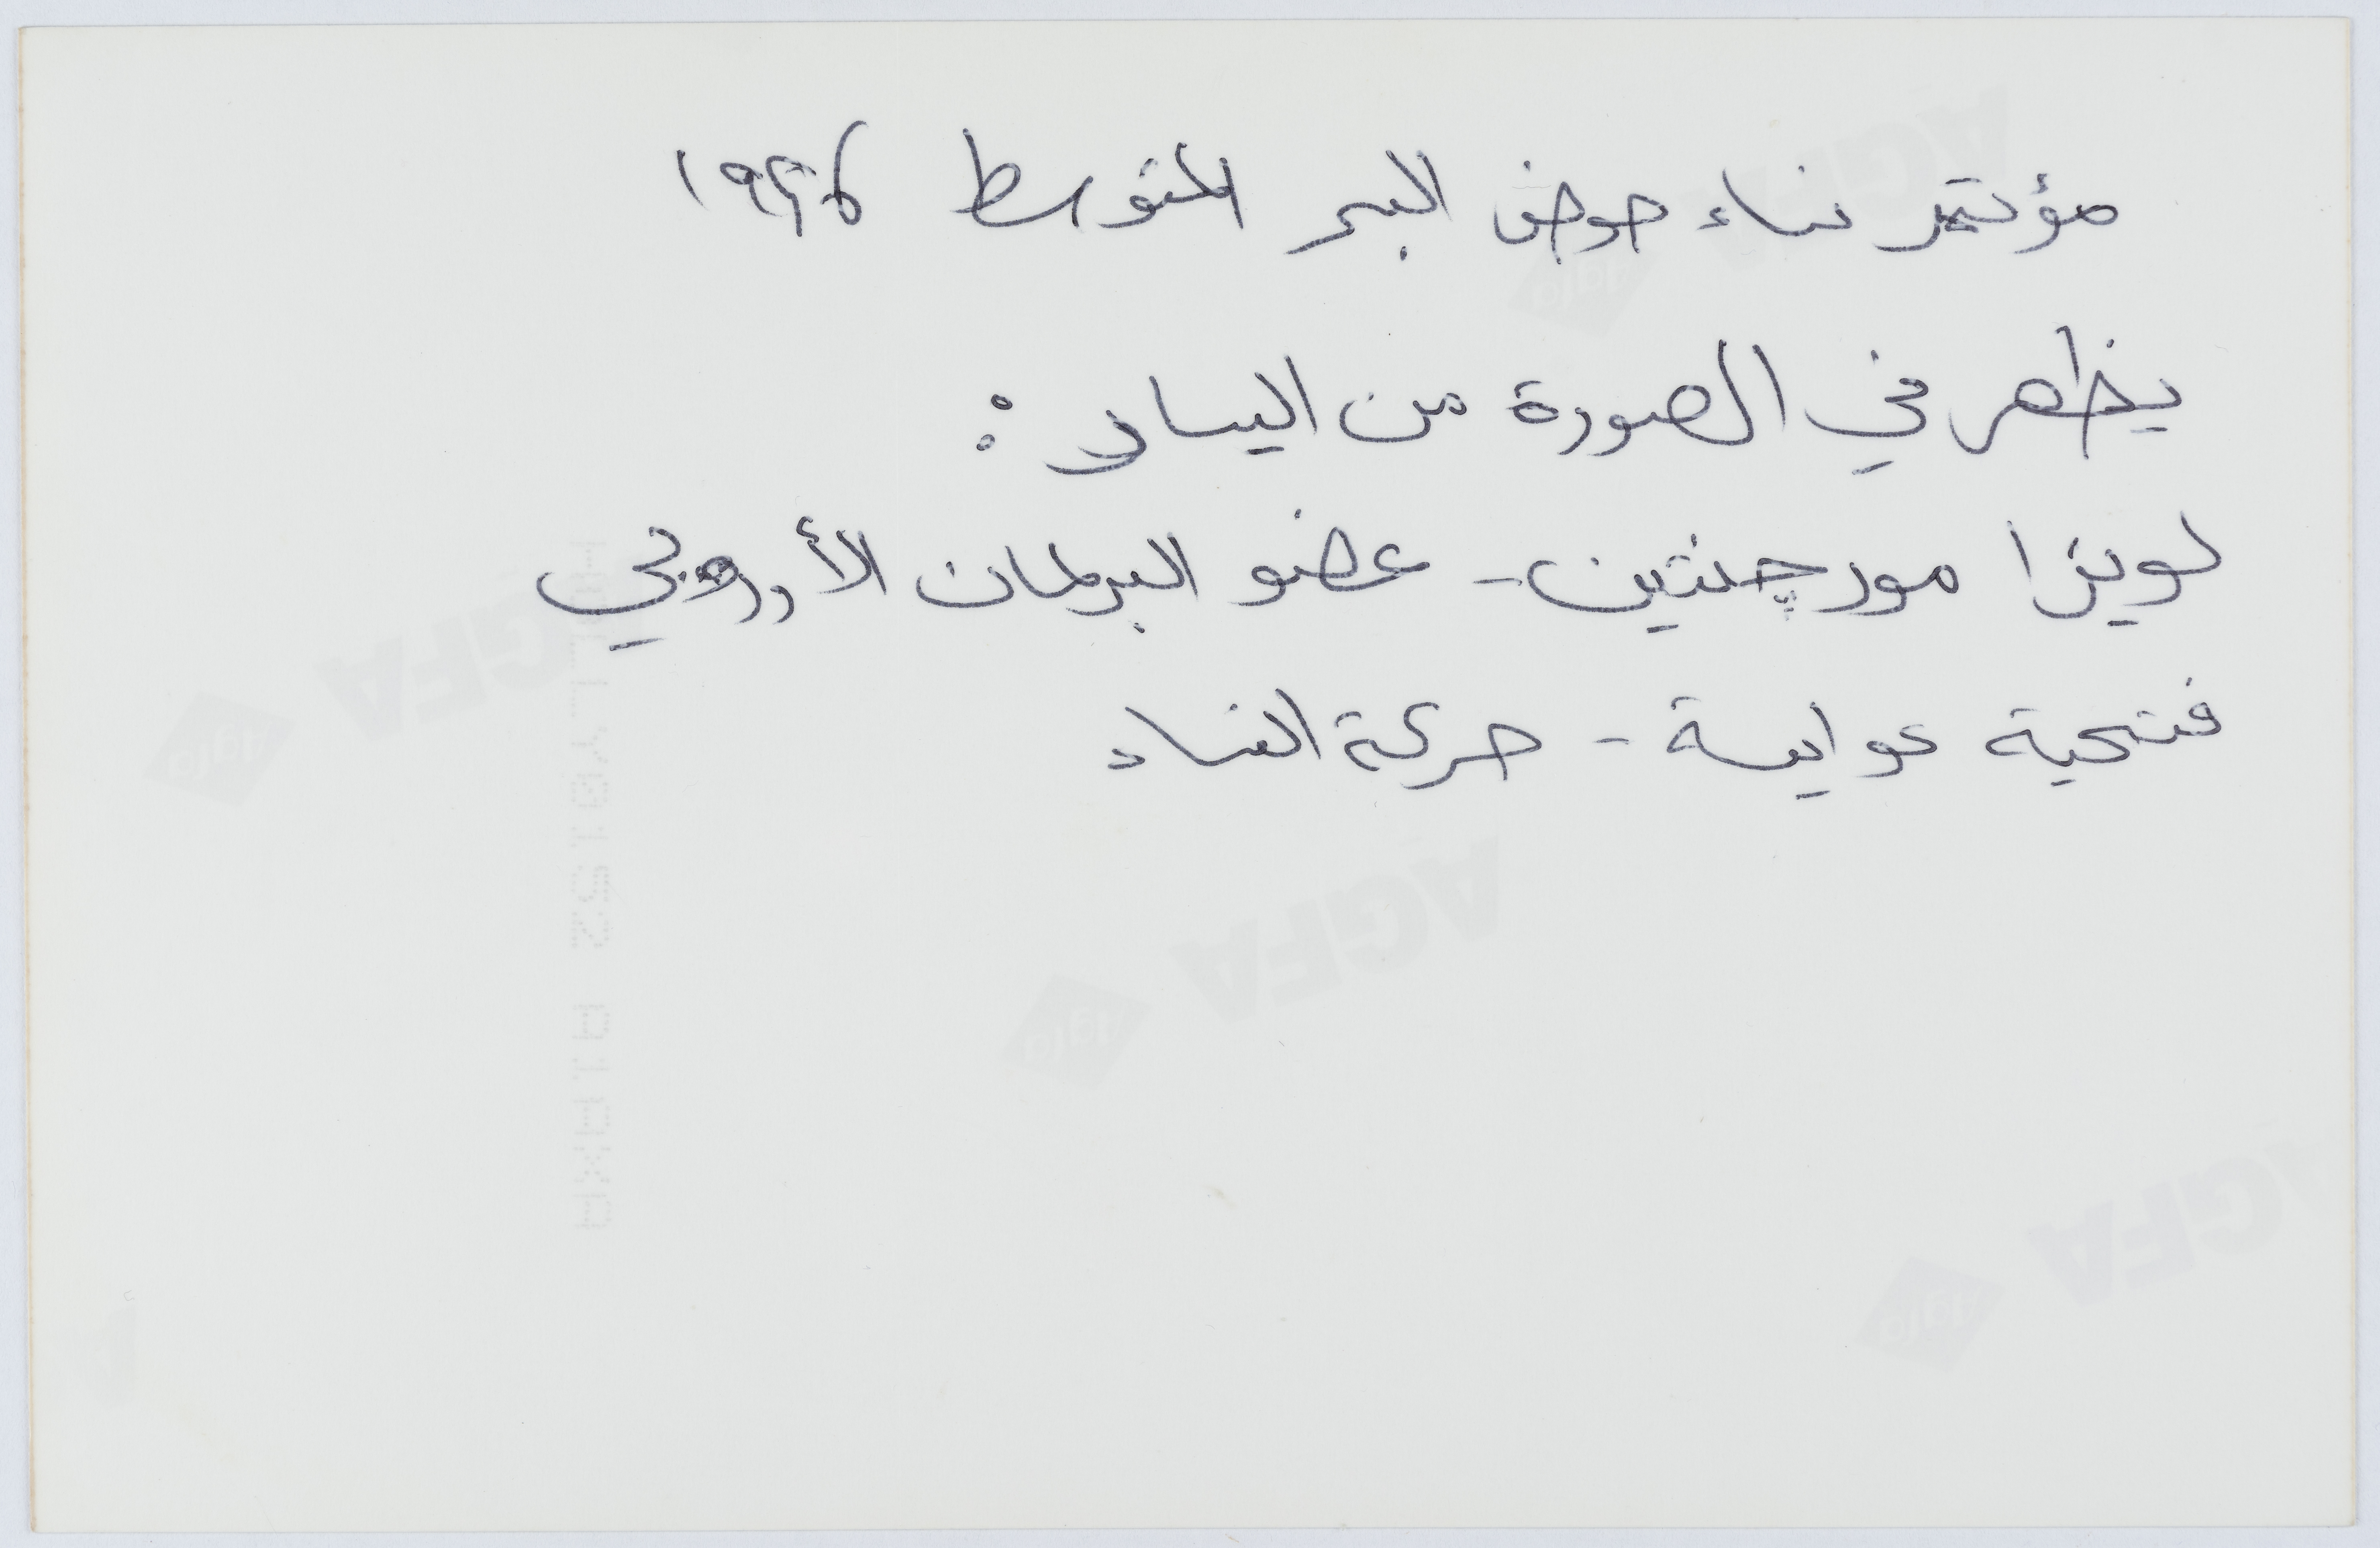 مؤتمر نساء حوض البحر المتوسط ١٩٩٦
يظهر في الصورة من اليسار :
لويزا مورچنتين - عضو البرلمان الأوروبي
فتحية عوايسة - حركة النساء
AGFA
AGFA
AGFA
AGFA